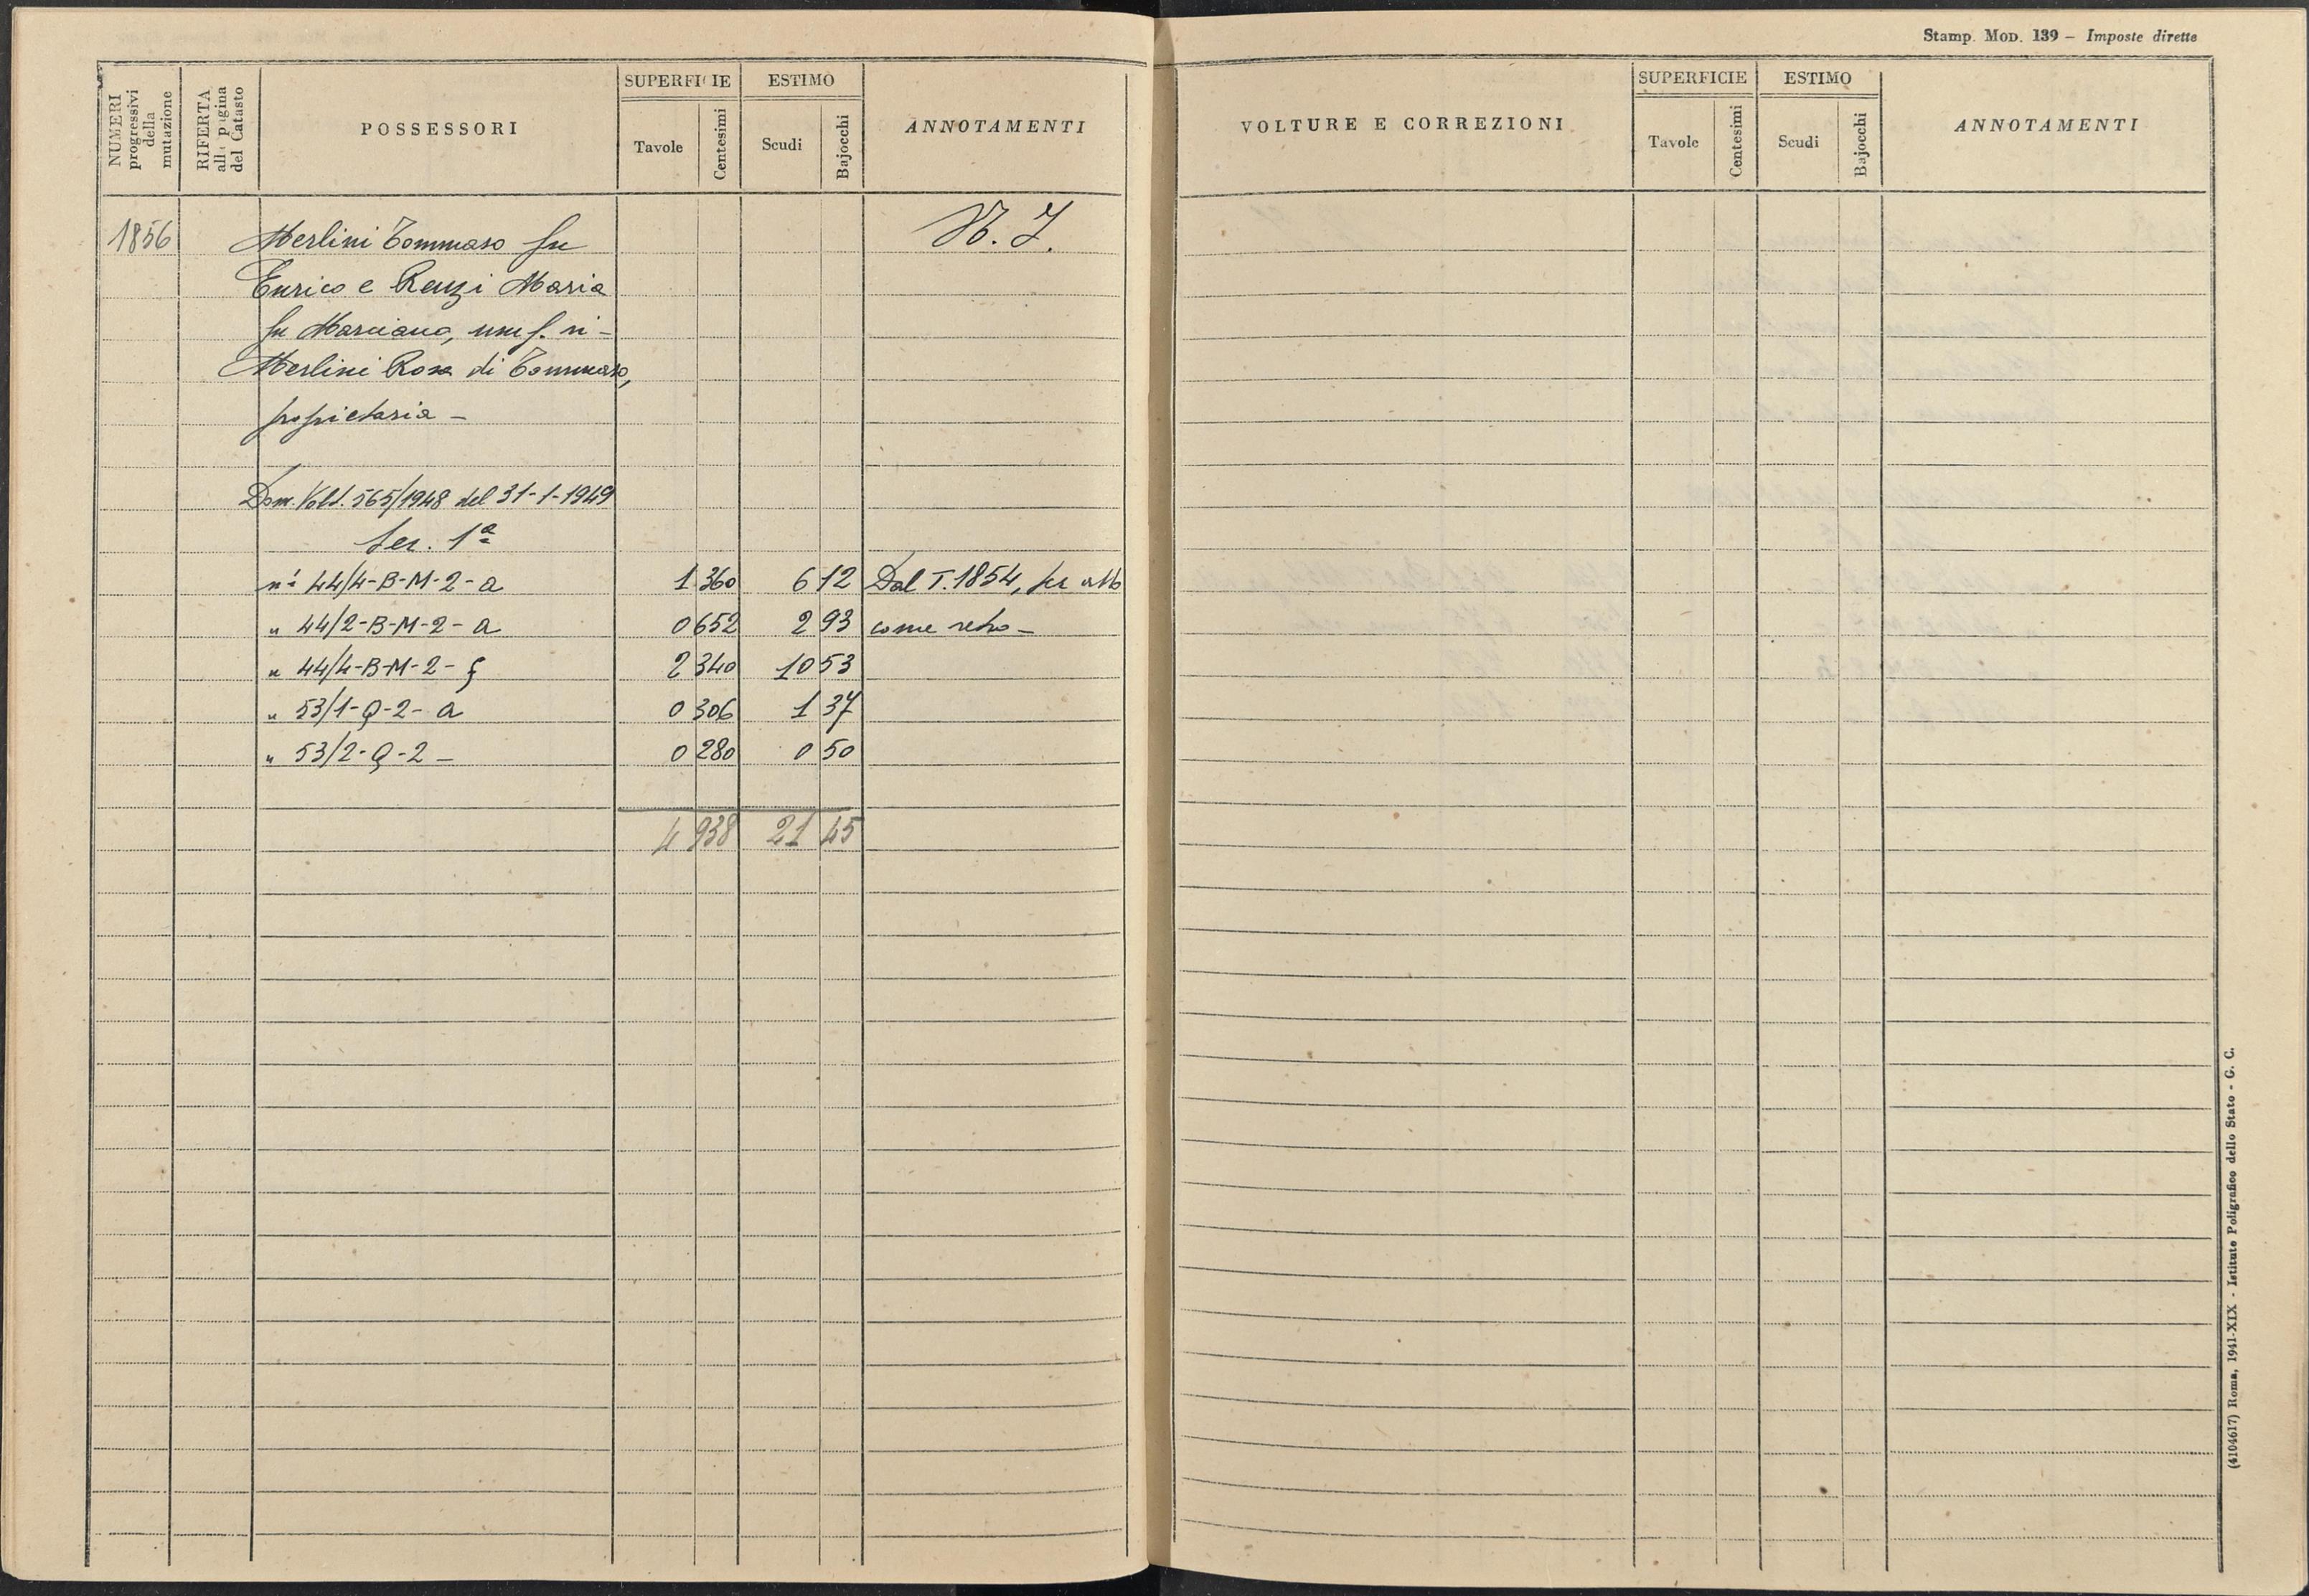 Stamp. Mod. 139 – Imposte dirette
NUMERI progressivi della mutazione
RIFERTA alla pagina del Catasto
POSSESSORI
SUPERFICIE
Tavole
Centesimi
ESTIMO
Scudi
Bajocchi
ANNOTAMENTI
1856 Merlini Tommaso fu
Enrico e Renzi Maria
fu Marciano, usuf. ri-
Merlini Rosa di Tommaso,
proprietaria -
Dom. Volt. 565/1948 del 31-1-1949
Ser. 1ª
n° 44/4-B-M-2-a 1 360 6 12 Dal T. 1854, per atto
" 44/2-B-M-2-a 0 652 2 93 come retro -
" 44/4-B-M-2-ç 2 340 10 53
" 53/1-Q-2-a 0 306 1 37
" 53/2-Q-2 - 0 280 0 50
4 938 21 45
VOLTURE E CORREZIONI
SUPERFICIE
Tavole
Centesimi
ESTIMO
Scudi
Bajocchi
ANNOTAMENTI
(4104617) Roma, 1941-XIX - Istituto Poligrafico dello Stato - G. C.